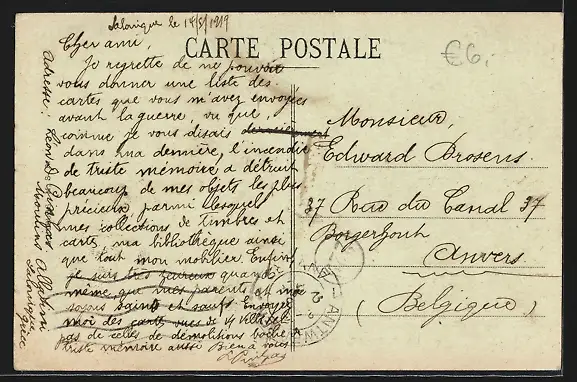 Salonique le 14/5/1919
€6.
CARTE POSTALE
Cher ami,
Je regrette de ne pouvoir
vous donner une liste des
cartes que vous m'avez envoyées
avant la guerre, vu que,
comme je vous disais
dans ma dernière, l'incendie
de triste mémoire a détruit
beaucoup de mes objets les plus
précieux parmi lesquels
mes collections de timbres et
cartes, ma bibliothèque ainsi
que tout mon mobilier. Enfin
je suis très heureux quand
même que mes parents et moi
soyons saints et saufs. Envoyez
moi des cartes vues de vº ville et
pas de celles de démolitions boche
triste mémoire aussi Bien à vous
Adresse: Léon
Moulins Allatini
Salonique
Grèce
Monsieur,
Edward Brosens.
37 Rue du Canal 37
Borgerhout
Anvers
(Belgique)
ANTW